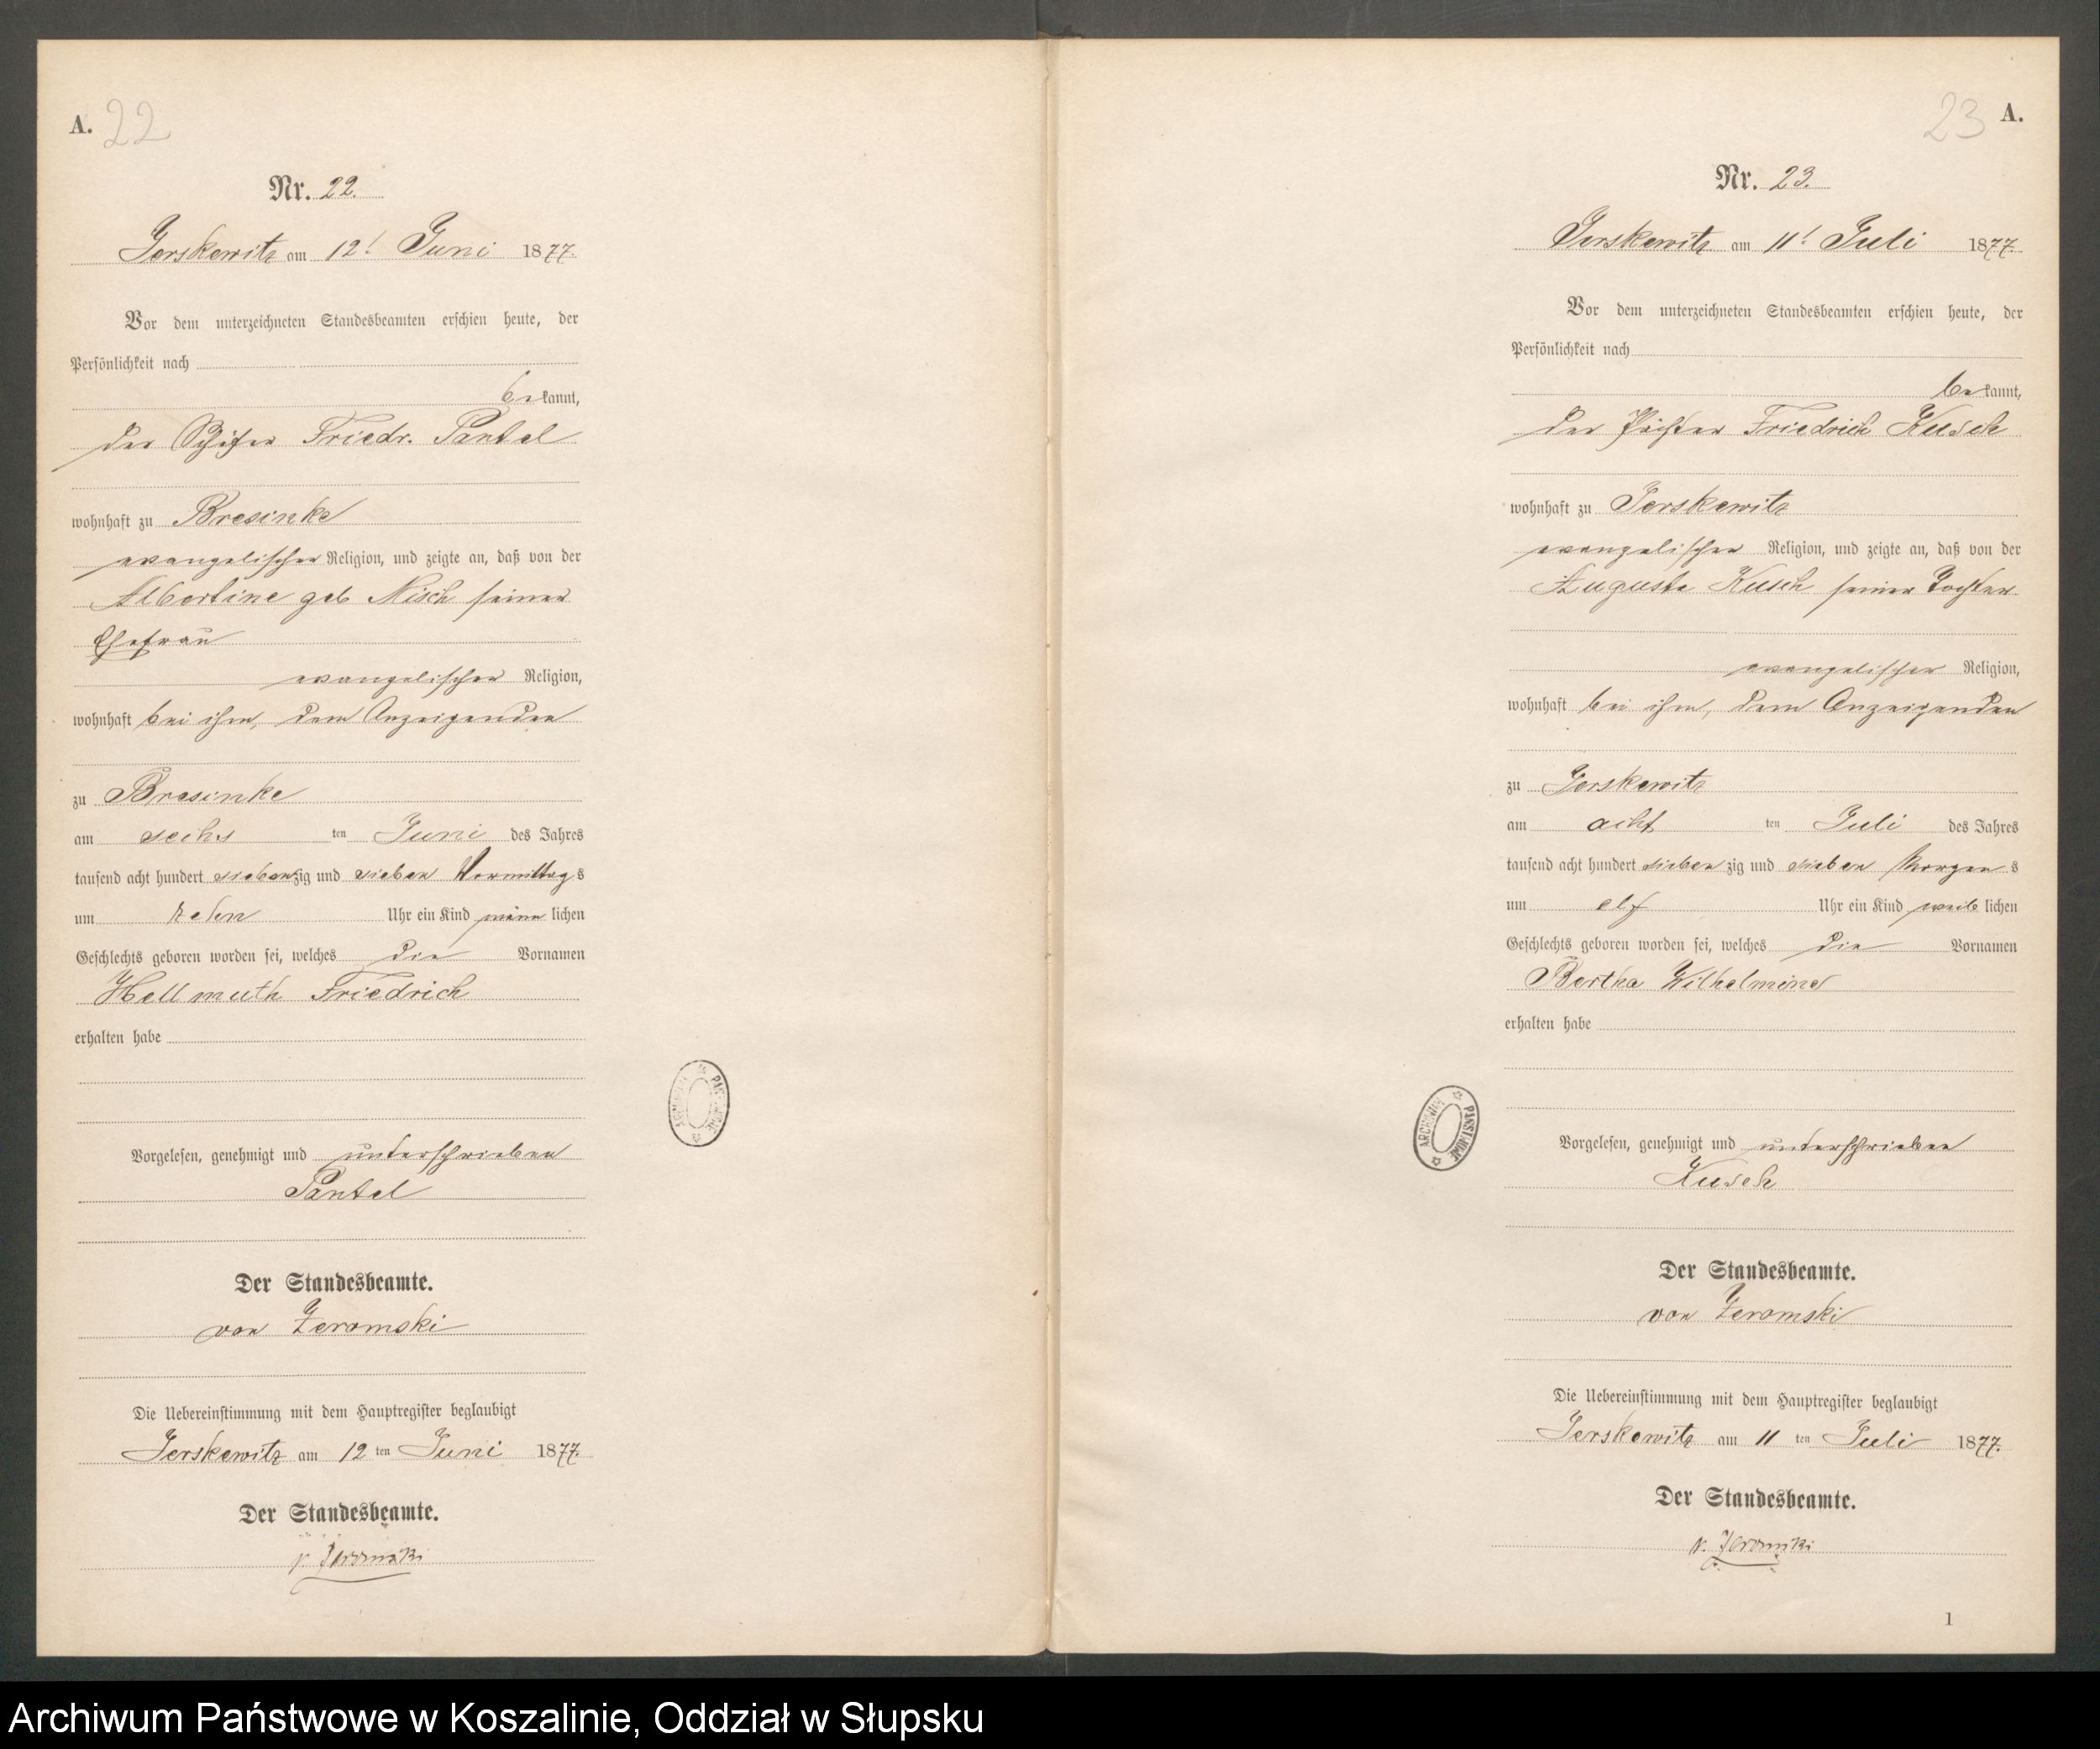 A. 22
Nr. 22.
Jerskewitz am 12t Juni 1877.
Vor dem unterzeichneten Standesbeamten erschien heute, der
Persönlichkeit nach
bekannt,
der Schäfer Friedr. Pantel
wohnhaft zu Bresinke
evangelischer Religion, und zeigte an, daß von der
Albertine geb Nisch seiner
Ehefrau
evangelischer Religion,
wohnhaft bei ihm, dem Anzeigenden
zu Bresinke
am sechs ten Juni des Jahres
tausend acht hundert siebenzig und sieben Vormittags
um zehn Uhr ein Kind männlichen
Geschlechts geboren worden sei, welches die Vornamen
Hellmuth Friedrich
erhalten habe
Vorgelesen, genehmigt und unterschrieben
Pantel
Der Standesbeamte.
von Zeromski
Die Uebereinstimmung mit dem Hauptregister beglaubigt
Jerskewitz am 12 ten Juni 1877.
Der Standesbeamte.
v. Zeromski
ARCHIWUM PAŃSTWOWE
23 A.
Nr. 23.
Jerskewitz am 11t Juli 1877.
Vor dem unterzeichneten Standesbeamten erschien heute, der
Persönlichkeit nach
bekannt,
der Pächter Friedrich Kusch
wohnhaft zu Jerskewitz
evangelischer Religion, und zeigte an, daß von der
Auguste Kusch seiner Tochter
evangelischer Religion,
wohnhaft bei ihm, dem Anzeigenden
zu Jerskewitz
am acht ten Juli des Jahres
tausend acht hundert siebenzig und sieben Morgens
um elf Uhr ein Kind weiblichen
Geschlechts geboren worden sei, welches die Vornamen
Bertha Wilhelmine
erhalten habe
Vorgelesen, genehmigt und unterschrieben
Kusch
Der Standesbeamte.
von Zeromski
Die Uebereinstimmung mit dem Hauptregister beglaubigt
Jerskewitz am 11 ten Juli 1877.
Der Standesbeamte.
v. Zeromski
ARCHIWUM PAŃSTWOWE
1
Archiwum Państwowe w Koszalinie, Oddział w Słupsku